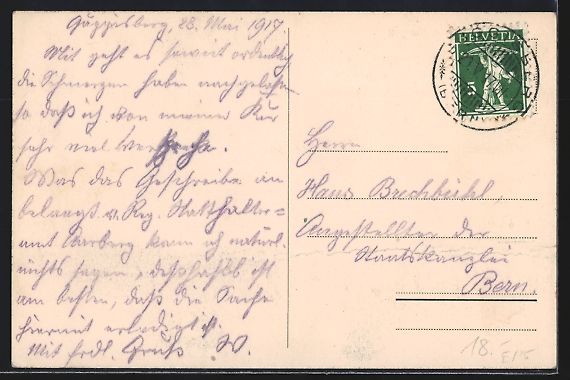 Guggisberg, 28. Mai 1917
Mir geht es soweit ordentlich
die Schmerzen haben nachgelassen
so daß ich von meiner Kur
sehr viel verspreche.
Was das Geschreibe an
belangt v. Reg. Statthalter=
amt Aarberg kann ich natürl.
nichts sagen, deßhalb ist
am besten, daß die Sache
hiermit erledigt ist.
Mit frdl. Gruß W.
HELVETIA
5
Herrn
Hans Brechbühl,
Angestellter der
Staatskanzlei
Bern.
18.-